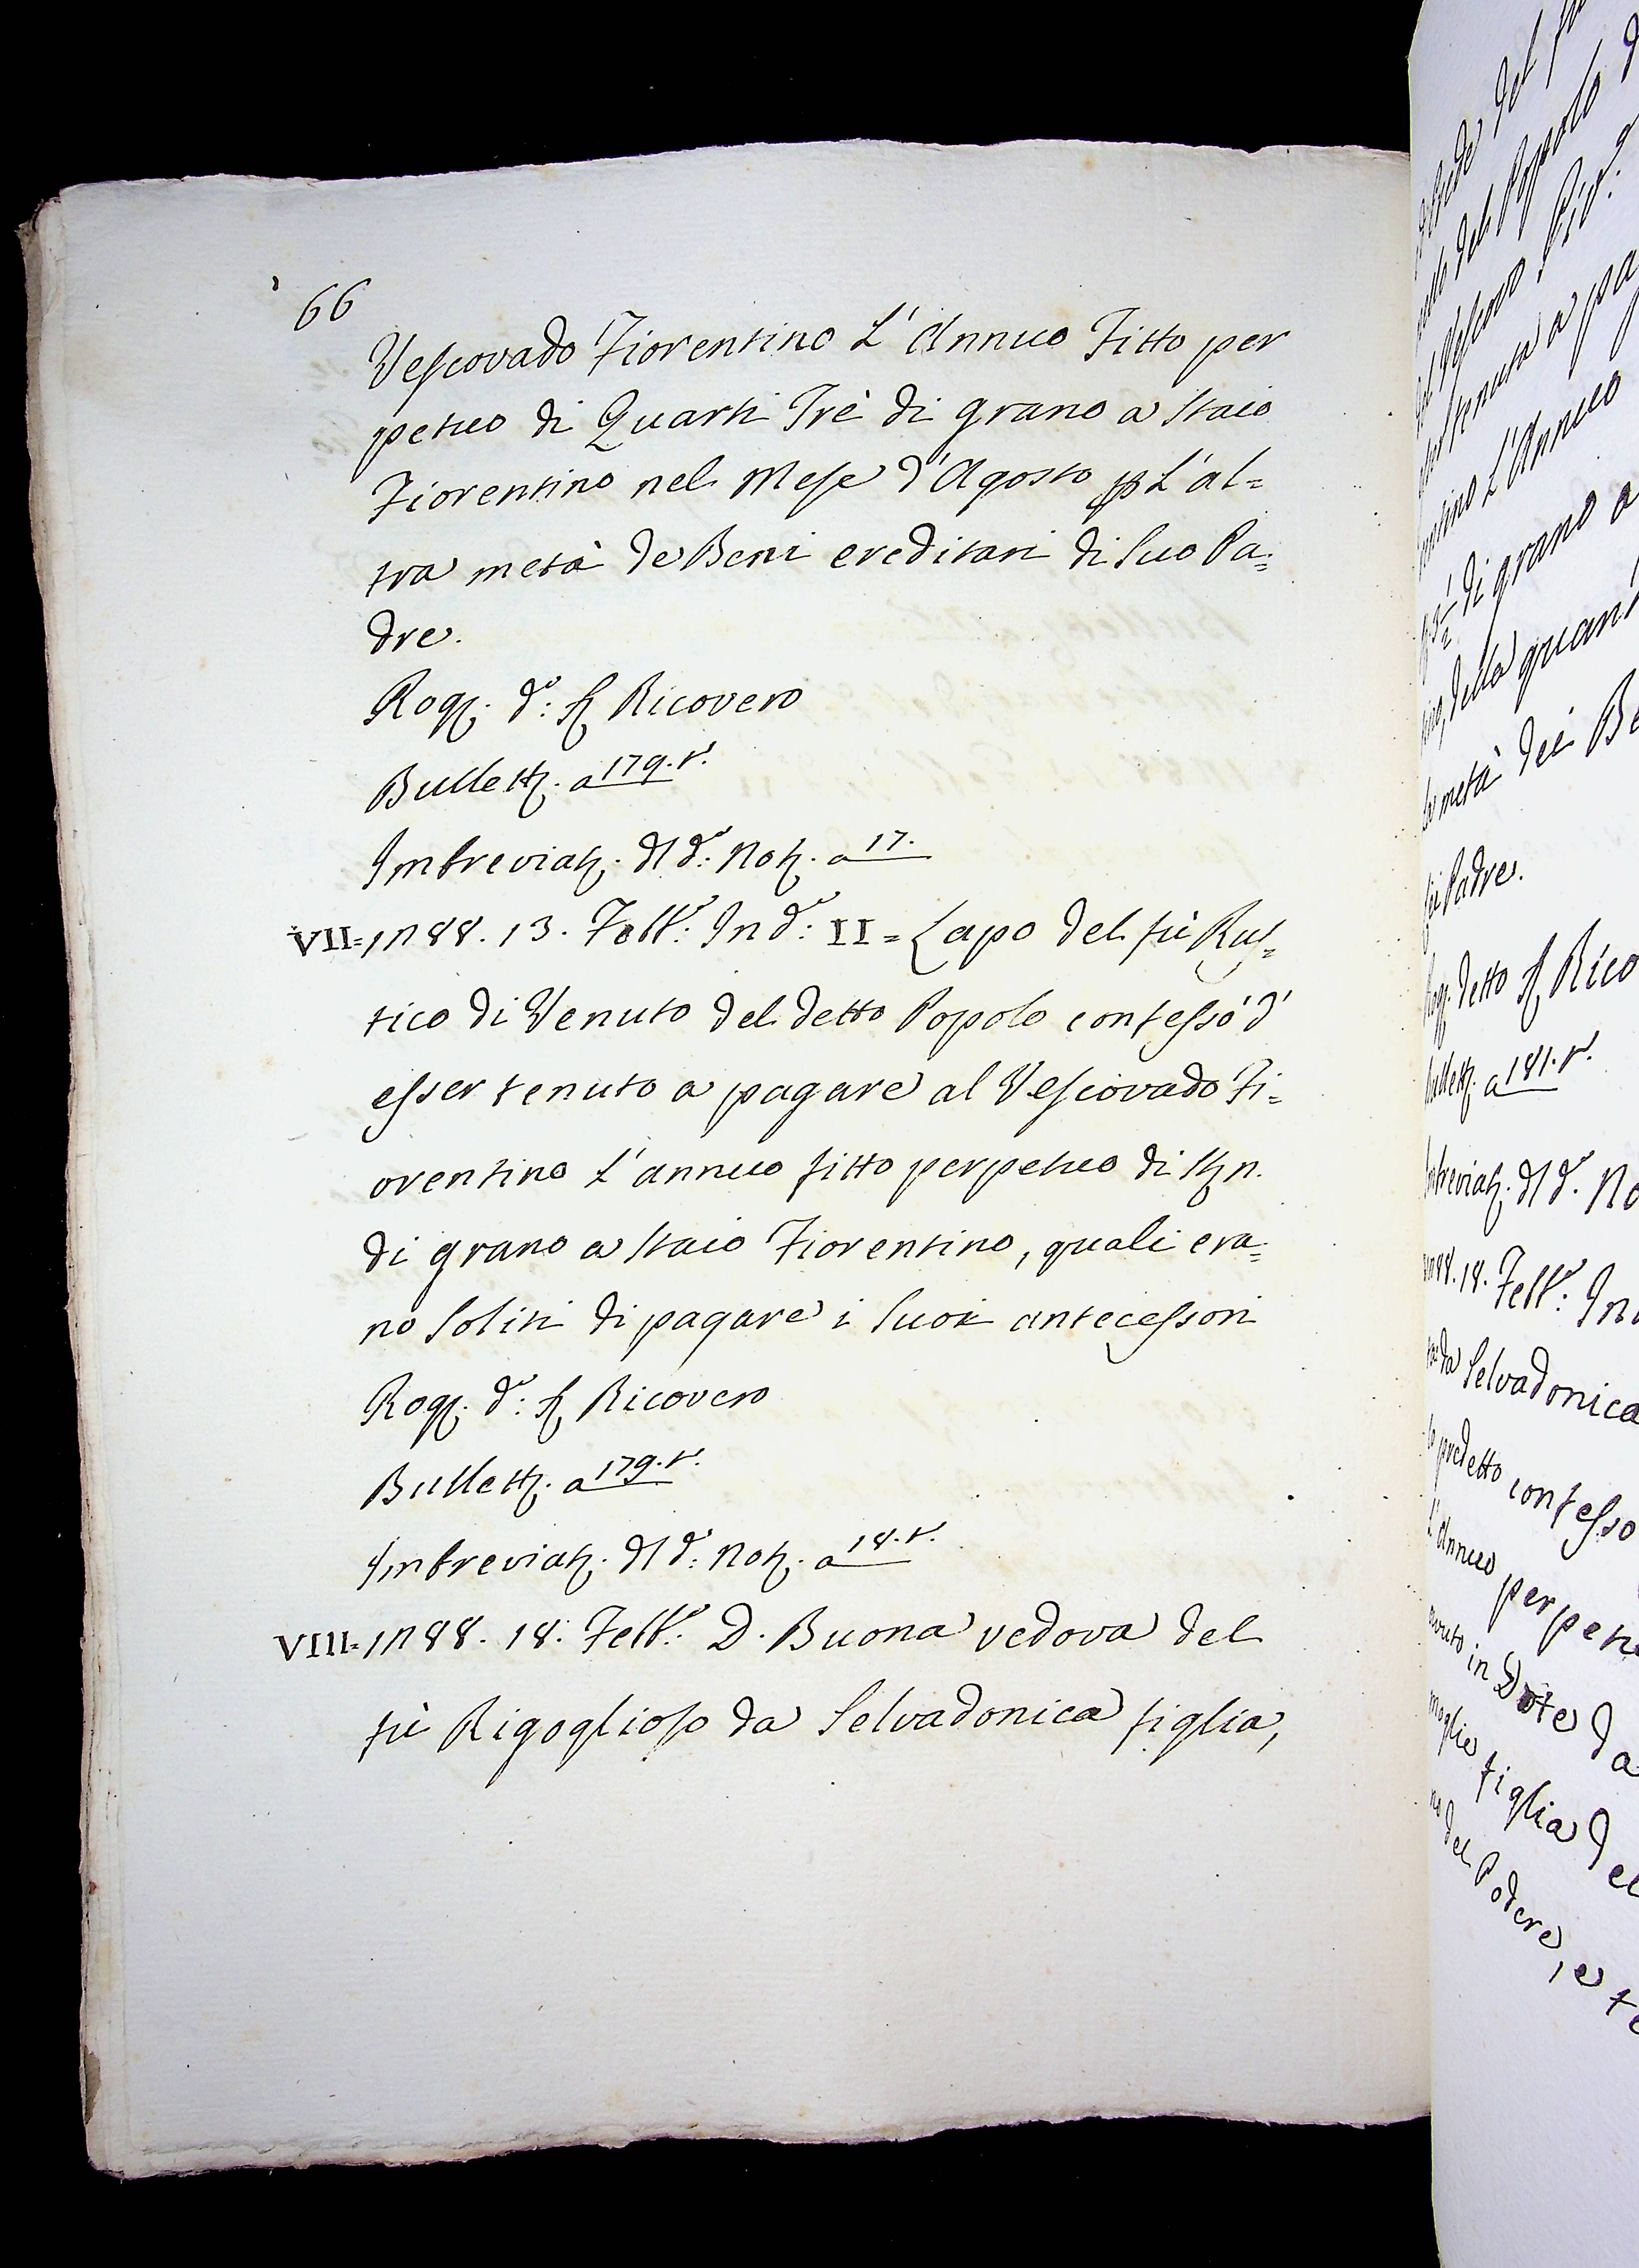 66
Vescovado Fiorentino L'Annuo Fitto per
petuo di Quarti Trè di grano a Staio
Fiorentino nel Mese d'Agosto p L'al=
tra metà de Beni ereditari di Suo Pa=
dre.
Rog. d.o: S. Ricovero
Bullett. a 179. r.
Imbreviat. dl d.o: Not. a 17.
VII= 1288. 13. Febb.o: Ind.e: II = Lapo del fù Rus=
tico di Venuto del detto Popolo confessò d'
esser tenuto a pagare al Vescovado Fi=
orentino L'annuo fitto perpetuo di
di grano a Staio Fiorentino, quali era=
no Soliti di pagare i Suoi antecessori
Rog. d.o: S. Ricovero
Bullett. a 179. r.
Imbreviat. dl d.o: Not. a 18. r.
VIII= 1288. 18. Febb.o: D. Buona vedova del
fù Rigoglioso da Selvadonica figlia,
del Popolo
Vescovo
tenuto a pa
L'Annuo
di grano a
della quan
metà dei Be
Padre.
detto S. Rico
a 181. r.
dl d. No
18. Febb.o: In
da Selvadonica
predetto confesso
L'Annuo perpetu
avuto in Dote da
moglie figlia del
del Podere, e te